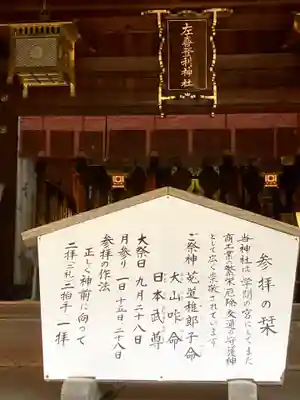 左喜登利神社
参拝の栞
当神社は学問の宮にしてまた
商工業の繁栄厄除交通の守護神
として広く崇敬されています
ご祭神 菟道稚郎子命
大山咋命
日本武尊
大祭日 九月二十八日
月参り 一日 十五日 二十八日
参拝の作法
正しく神前に向って
二拝 二礼 二拍手 一拝